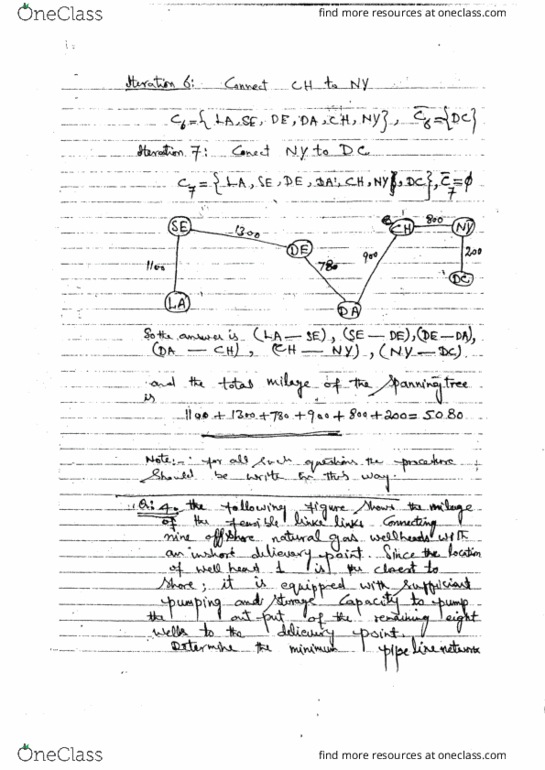 OneClass
find more resources at oneclass.com
Iteration 6: Connect CH to NY
C6={ LA, SE, DE, DA, CH, NY}, C̄6={DC}
Iteration 7: Conect NY to DC
C7={ LA, SE, DE, DA, CH, NY, DC}, C̄7=φ
SE
1300
DE
CH
800
NY
1100
780
900
200
DC
LA
DA
So the answer is (LA — SE), (SE — DE), (DE — DA),
(DA — CH), (CH — NY), (NY — DC).
and the total milage of the spanning tree
is
1100 + 1300 + 780 + 900 + 800 + 200 = 5080
Note:-: for all such questions the procedure
should be write in this way.
Q: 4. the following figure shows the mileage
of the feasible links links connecting
nine offshore natural gas wellheads with
an inshort delievary point. Since the location
of well head 1 is the closest to
shore; it is equipped with sufficiant
pumping and storage capacity to pump
the out put of the remaining eight
wells to the delievery point.
Determine the minimum pipe line network
OneClass
find more resources at oneclass.com